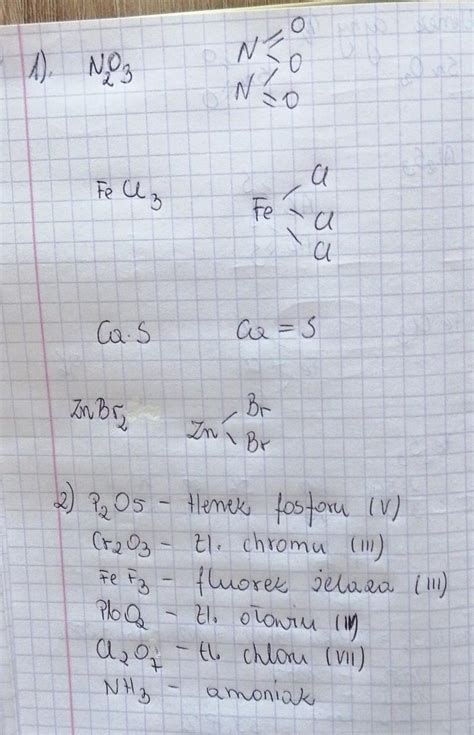 1). N2O3 N = O
O
N = O
FeCl3 Fe Cl
Cl
Cl
CaS Ca = S
ZnBr2 Zn Br
Br
2) P2O5 – tlenek fosforu (V)
Cr2O3 – tl. chromu (III)
FeF3 – fluorek żelaza (III)
PbO2 – tl. ołowiu
Cl2O7 – tl. chloru (VII)
NH3 – amoniak